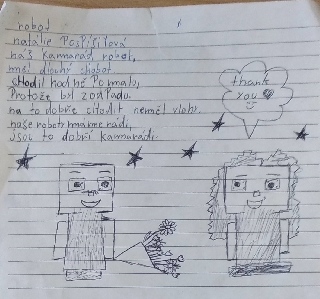 robot
natálie Pospíšilová
náš kamarád robot,
měl dlouhý chobot.
chodil hodně pomalu,
Protože byl z odpadu.
na to dobře citodit neměl vlohy.
naše roboty máme rádi,
jsou to dobří kamarádi.
thank
you